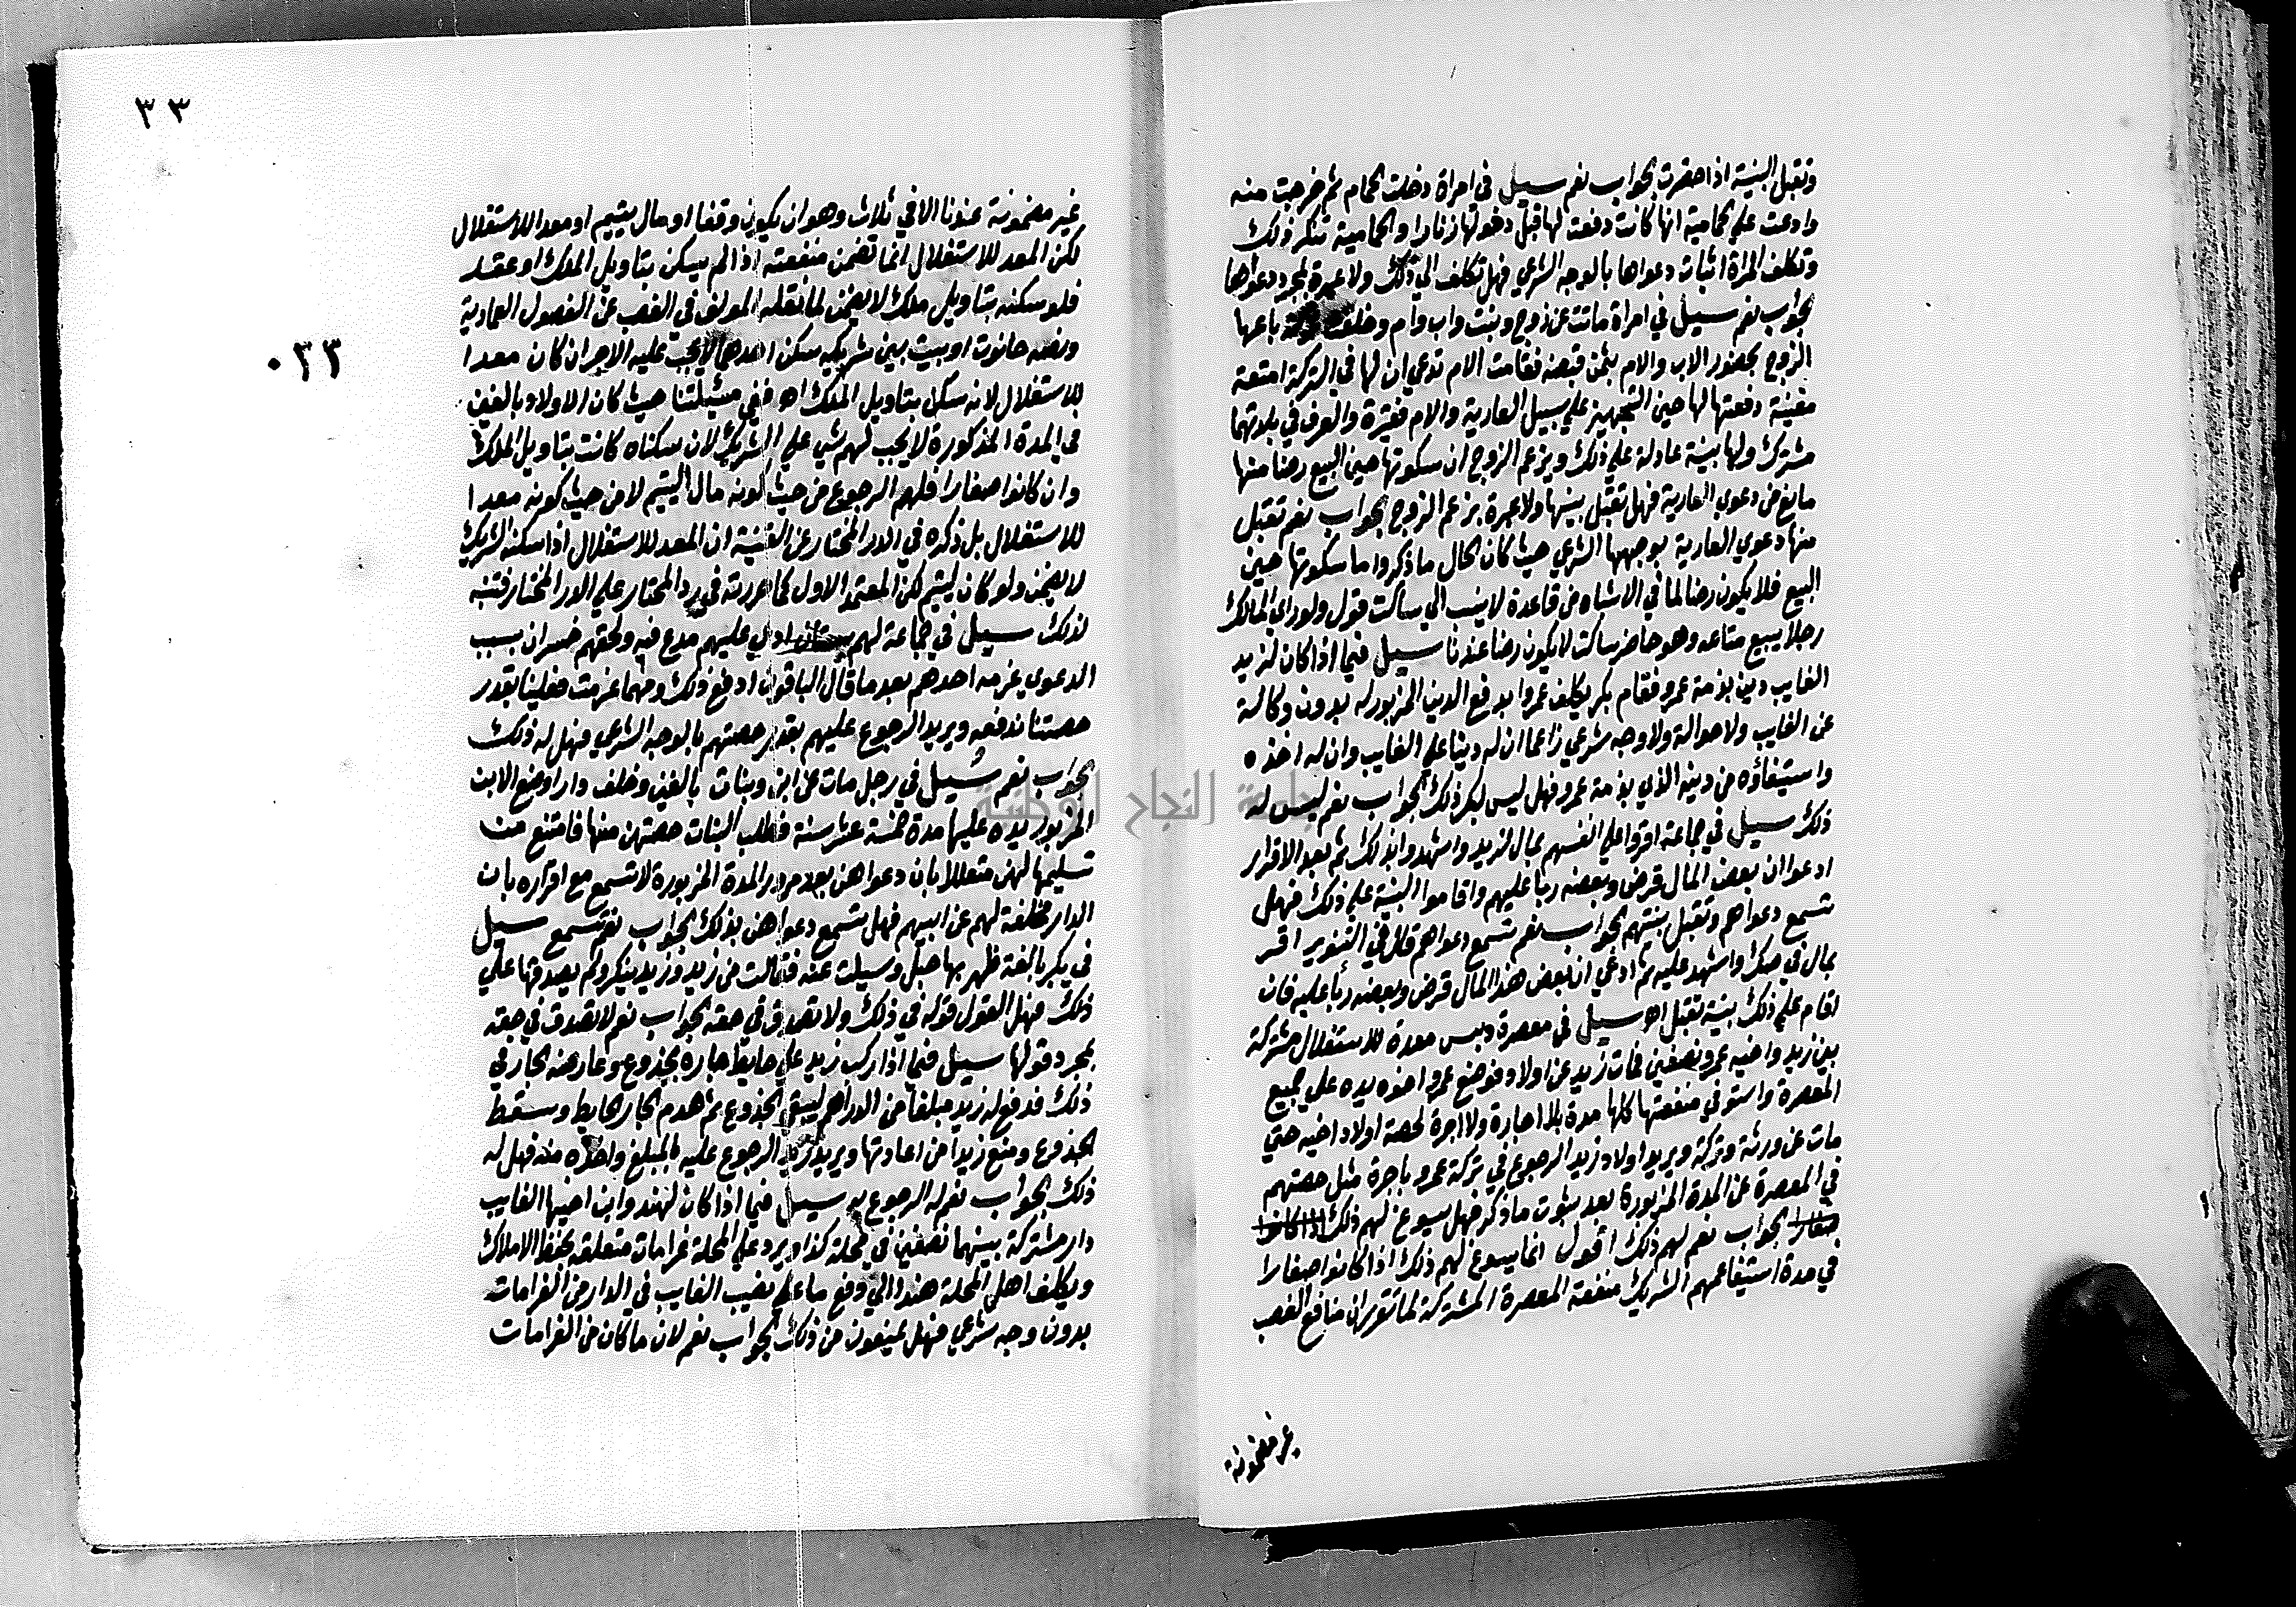 وتقبل البينة اذا حضرت الجواب نعم سيل في امراة دخلت الحمام ثم خرجت منه
وادعت علي الحمامية انها كانت دفعت لها قبل دخولها زنارا والحمامية تنكر ذلك
وتكلف المراة اثبات دعواها بالوجه الشرعي فهل تكلف الي ذلك ولا عبرة بمجرد دعواها
الجواب نعم سيل في امراة ماتت عن زوج وبنت واب وام وخلفت باعها
الزوج بحضور الاب والام بثمن قبضه فقامت الام تدعي ان لها في التركة امتعة
معينة دفعتها لها حين التجهيز علي سبيل العارية والام فقيرة والعرف في بلادتها
مشترك ولها بينة عادلة علي ذلك ويزعم الزوج ان سكوتها حين البيع رضا منها
مانع من دعوي العارية فهل تقبل بينتها ولا عبرة بزعم الزوج الجواب نعم تقبل
منها دعوي العارية بوجهها الشرعي حيث كان الحال ما ذكر واما سكوتها حين
البيع فلا يكون رضا لما في الاشباه من قاعدة لا ينسب الي ساكت قول ولو راي المالك
رجلا يبيع متاعه وهو حاضر ساكت لا يكون رضا عندنا سيل فيما اذا كان لزيد
الغايب دين بذمة عمرو فقام بكر يكلف عمروا بدفع الدين المزبور له بدون وكالة
عن الغايب ولا حوالة ولا وجه شرعي زاعما ان له دينا علي الغايب وان له اخذه
واستيفاؤه من دينه الذي بذمة عمرو فهل ليس لبكر ذلك الجواب نعم ليس له
ذلك سيل في جماعة اقروا علي انفسهم بمال لزيد واشهدوا بذلك ثم بعد الاقرار
ادعوا ان بعض المال قرض وبعضه ربا عليهم واقاموا البينة علي ذلك فهل
تسمع دعواهم وتقبل بينتهم الجواب نعم تسمع دعواهم قال في التنوير اقر
بمال في صك واشهد عليه ثم ادعي ان بعض هذا المال قرض وبعضه ربا عليه فان
اقام علي ذلك بينة تقبل اه سيل في معصرة دبس معدة للاستغلال مشتركة
بين زيد واخيه عمرو نصفين فمات زيد عن اولاد فوضع عمرو اخوه يده علي جميع
المعصرة واستوفي منفعتها كلها مدة بلا اجارة ولا اجرة لحصة اولاد اخيه حتي
مات عن ورثة وتركة ويريد اولاد زيد الرجوع في تركة عمرو باجرة مثل حصتهم
في المعصرة عن المدة المزبورة بعد ثبوت ما ذكر فهل يسوغ لهم ذلك اذا كانوا
صغارا الجواب نعم لهم ذلك اقول انما يسوغ لهم ذلك اذا كانوا صغارا
في مدة استيفا عمهم الشريك منفعة المعصرة المشتركة لما تقرر ان منافع الغصب
غير مضمونة
٣٣
٠٣٣
غير مضمونة عندنا الا في ثلاث وهو ان يكون وقفا او مال يتيم او معدا للاستغلال
لكن المعد للاستغلال انما تضمن منفعته اذا لم يسكن بتاويل الملك او عقد
فلو سكنه بتاويل ملك لا يضمن لما نقله المولف في الغصب عن الفصول العمادية
ونصه حانوت او بيت بين شريكين سكن احدهما لا يجب عليه الاجر ان كان معدا
للاستغلال لانه سكن بتاويل الملك اه ففي مسئلتنا حيث كان الاولاد بالغين
في المدة المذكورة لا يجب لهم شي علي الشريك لان سكناه كانت بتاويل الملك
وان كانوا صغارا فلهم الرجوع من حيث كونه مال اليتيم لا من حيث كونه معدا
للاستغلال بل ذكره في الدر المختار عن القنية ان المعد للاستغلال اذا سكنه الشريك
لا يضمن ولو كان ليتيم لكن المعتمد الاول كما حررته في رد المحتار علي الدر المختار فتنبه
لذلك سيل في جماعة لهم بستان ادعي عليهم مدع فيه ولحقهم خسران بسبب
الدعوي غرمه احدهم بعد ما قال الباقون ادفع ذلك ومهما غرمت فعلينا بقدر
حصتنا ندفعه ويريد الرجوع عليهم بقدر حصتهم بالوجه الشرعي فهل له ذلك
الجواب نعم سيل في رجل مات عن ابن وبنات بالغين وخلف دارا وضع الابن
المزبور يده عليها مدة خمسة عشر سنة فطلب البنات حصتهن منها فامتنع من
تسليمها لهن متعللا بان دعواهن بعد مرور المدة المزبورة لا تسمع مع اقراره بان
الدار مخلفة لهم عن ابيهم فهل تسمع دعواهن بذلك الجواب نعم تسمع سيل
في بكر بالغة ظهر بها حبل وسيلت عنه فقالت من زيد وزيد ينكر ولم يصدقها علي
ذلك فهل القول قوله في ذلك ولا تصدق في حقه الجواب نعم لا تصدق في حقه
بمجرد قولها سيل فيما اذا ركب زيد علي حايط جاره بجذوع وعارضه الجار في
ذلك فدفع له زيد مبلغا من الدراهم ليبقي الجذوع ثم هدم الجار الحايط وسقط
الجذوع ومنع زيدا من اعادتها ويريد زيد الرجوع عليه بالمبلغ واخذه منه فهل له
ذلك الجواب نعم له الرجوع به سيل فيما اذا كان لهند وابن اخيها الغايب
دار مشتركة بينهما نصفين في محلة كذا ويرد علي المحلة غرامات متعلقة بحفظ الاملاك
ويكلف اهل المحلة هندا الي دفع ما علي نصيب الغايب في الدار من الغرامات
بدون وجه شرعي فهل يمنعون من ذلك الجواب نعم لان ما كان من الغرامات
جامعة النجاح الوطنية